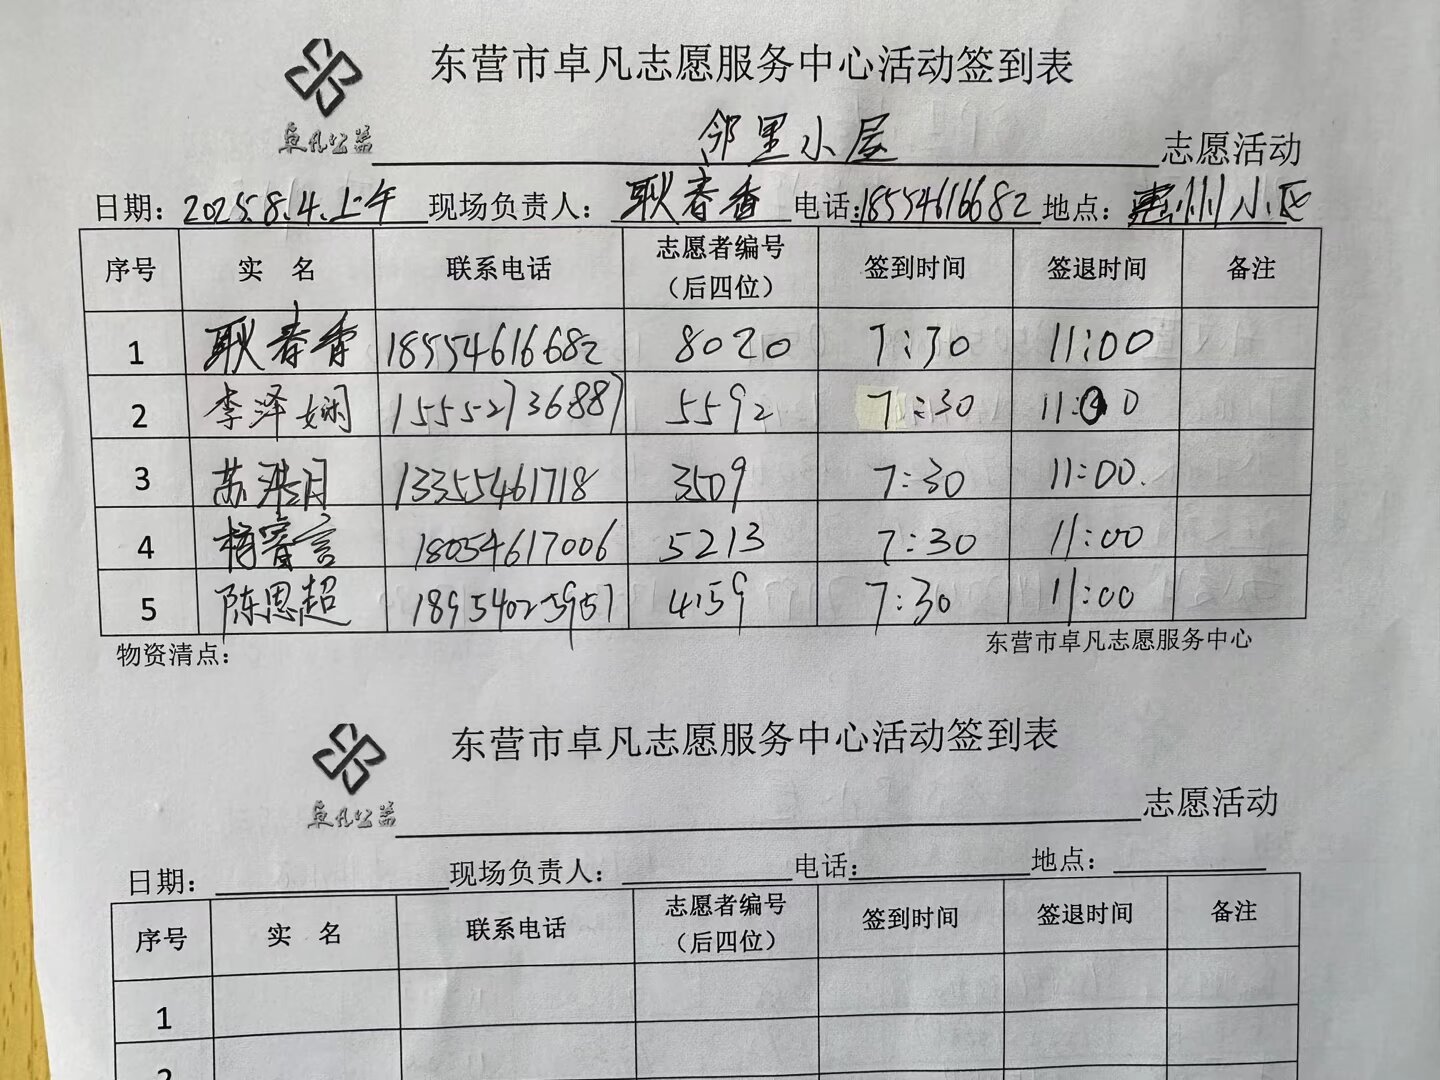 东营市卓凡志愿服务中心活动签到表
卓凡公益 邻里小屋 志愿活动
日期：2025.8.4.上午 现场负责人：耿春香 电话：18554616682 地点：惠州小区
序号 实 名 联系电话 志愿者编号（后四位） 签到时间 签退时间 备注
1 耿春香 18554616682 8020 7:30 11:00
2 李泽娴 15552736887 5592 7:30 11:00
3 苏浩月 13355461718 3509 7:30 11:00.
4 杨睿言 18054617006 5213 7:30 11:00
5 陈思超 18954025957 4159 7:30 11:00
物资清点： 东营市卓凡志愿服务中心
东营市卓凡志愿服务中心活动签到表
卓凡公益 志愿活动
日期： 现场负责人： 电话： 地点：
序号 实 名 联系电话 志愿者编号（后四位） 签到时间 签退时间 备注
1
2